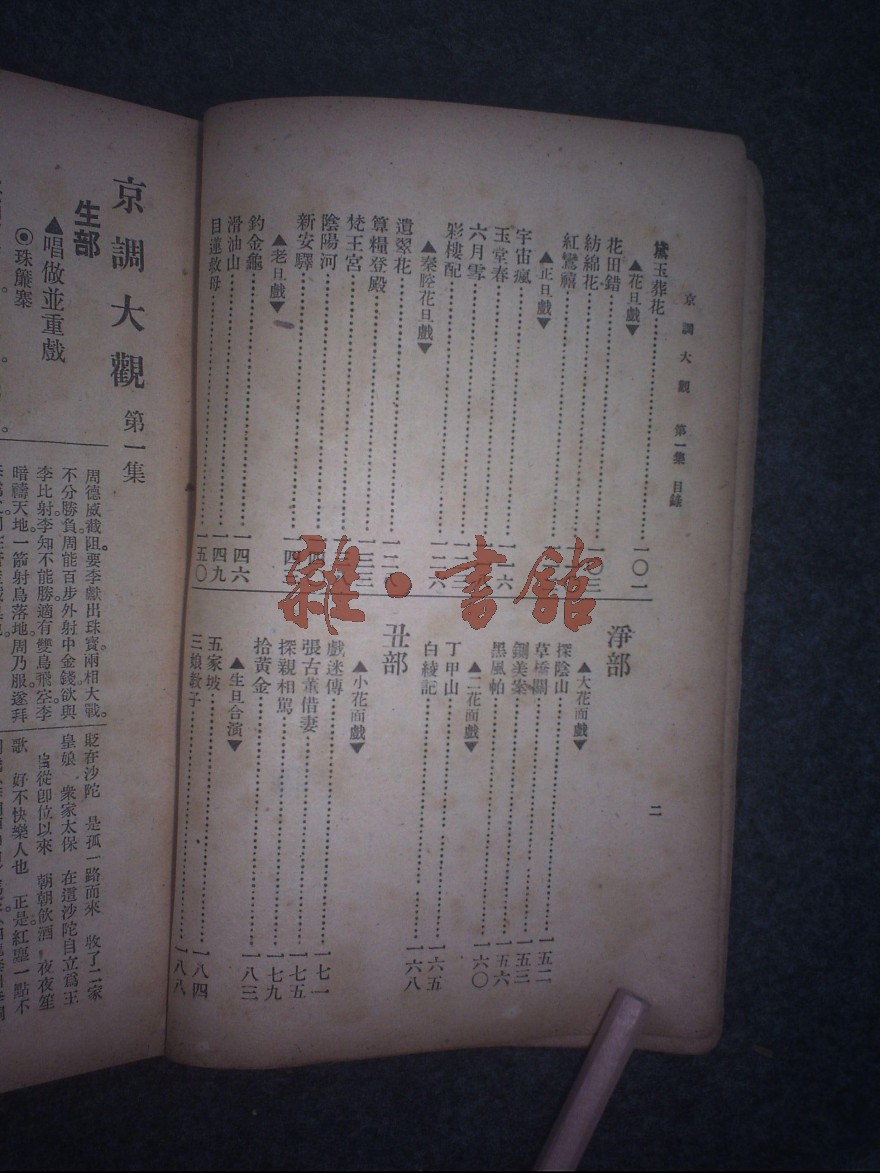 京調大觀 第一集 目錄
二
黛玉葬花 一〇二
▲花旦戲▼
花田錯
紡綿花
紅鸞禧
▲正旦戲▼
宇宙瘋
玉堂春
六月雪
彩樓配 一二六
▲秦腔花旦戲▼
遺翠花
算糧登殿
梵王宮
陰陽河
新安驛
▲老旦戲▼
釣金龜 一四六
滑油山 一四九
目蓮救母 一五〇
淨部
▲大花面戲▼
探陰山 一五二
草橋關 一五三
鍘美案 一五六
黑風帕 一六〇
▲二花面戲▼
丁甲山 一六五
白綾記 一六八
丑部
▲小花面戲▼
戲迷傳 一七一
張古董借妻 一七五
探親相罵 一七九
拾黃金 一八三
▲生旦合演▼
五家坡 一八四
三娘教子 一八八
雜·書館
京調大觀 第一集
生部
▲唱做並重戲
◉珠簾寨
周德威截阻要李獻出珠寶。兩相大戰。
不分勝負。周能百步外射中金錢。欲與
李比射。李知不能勝。適有雙鳥飛空。李
暗禱天地。一箭射鳥落地。周乃服。遂拜
貶在沙陀 是孤一路而來 收了二家
皇娘 衆家太保 在這沙陀自立爲王
官從卽位以來 朝朝飲酒 夜夜笙
歌 好不快樂人也 正是紅塵一點不